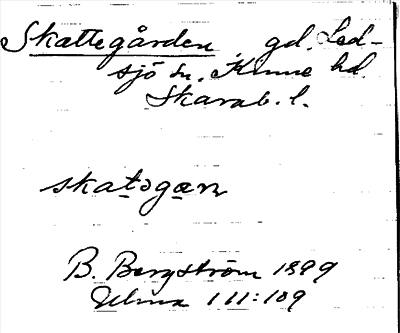 Skattegården, gd. Led-
sjö sn. Kinne hd.
Skarab. l.
skatogæn
B. Bergström 1899
Ulma 111:109